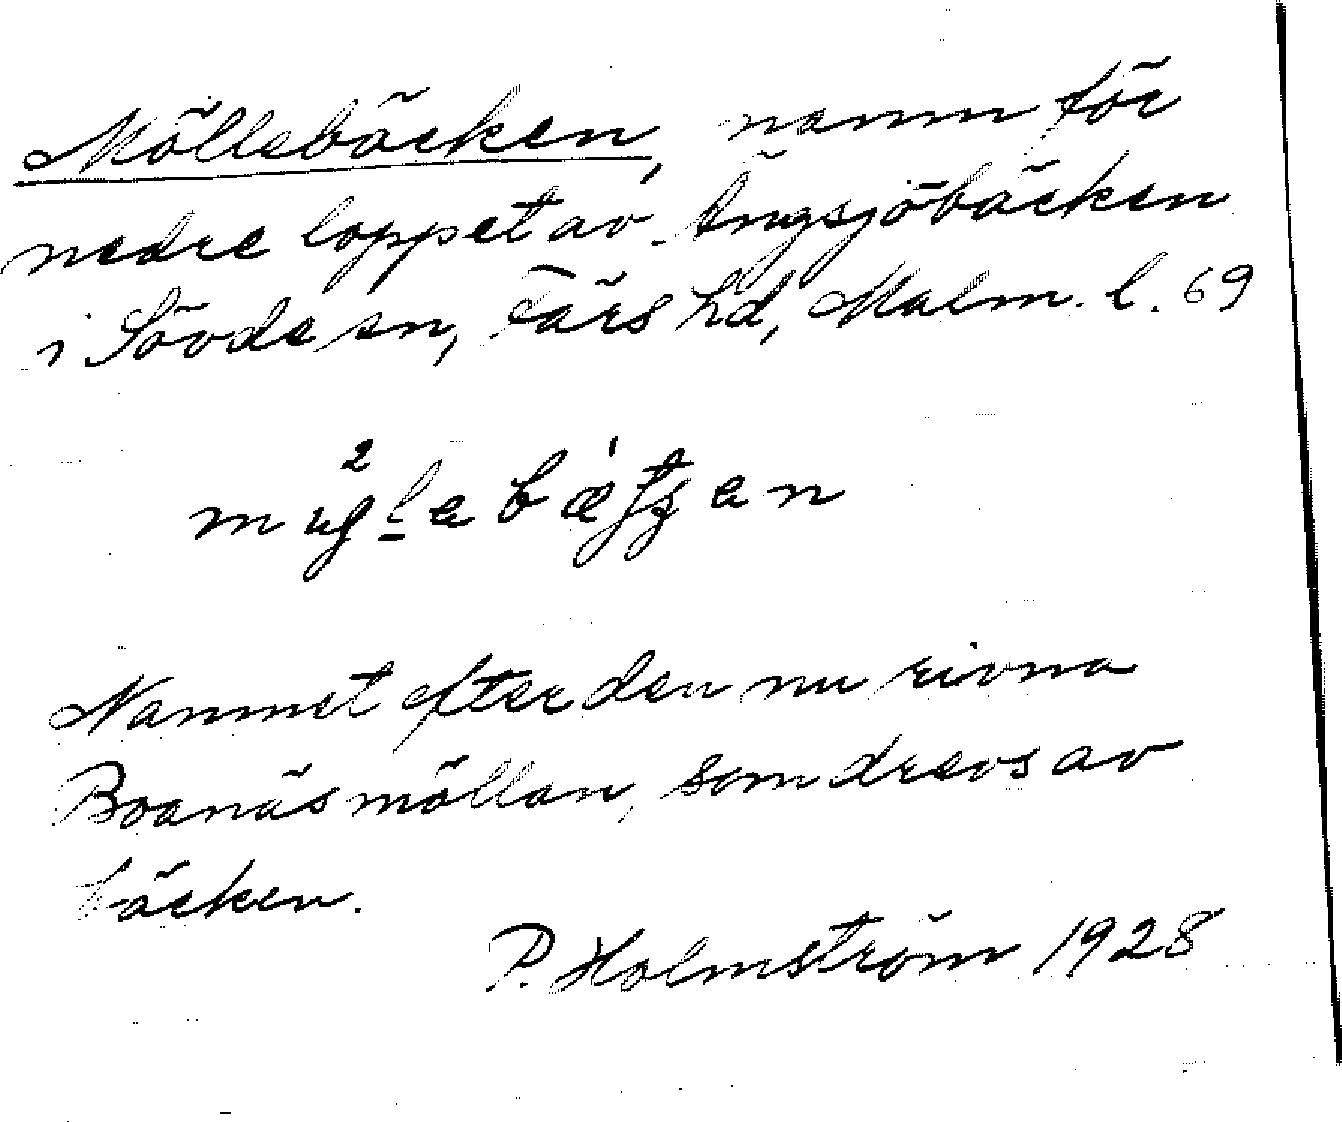 Möllebäcken, namn för
nedre loppet av Ängsjöbäcken
i Sövde sn, Färs hd, Malm. l. 69
Namnet efter den nu rivna
Boanäsmöllan, som drevs av
bäcken.
P. Holmström 1928